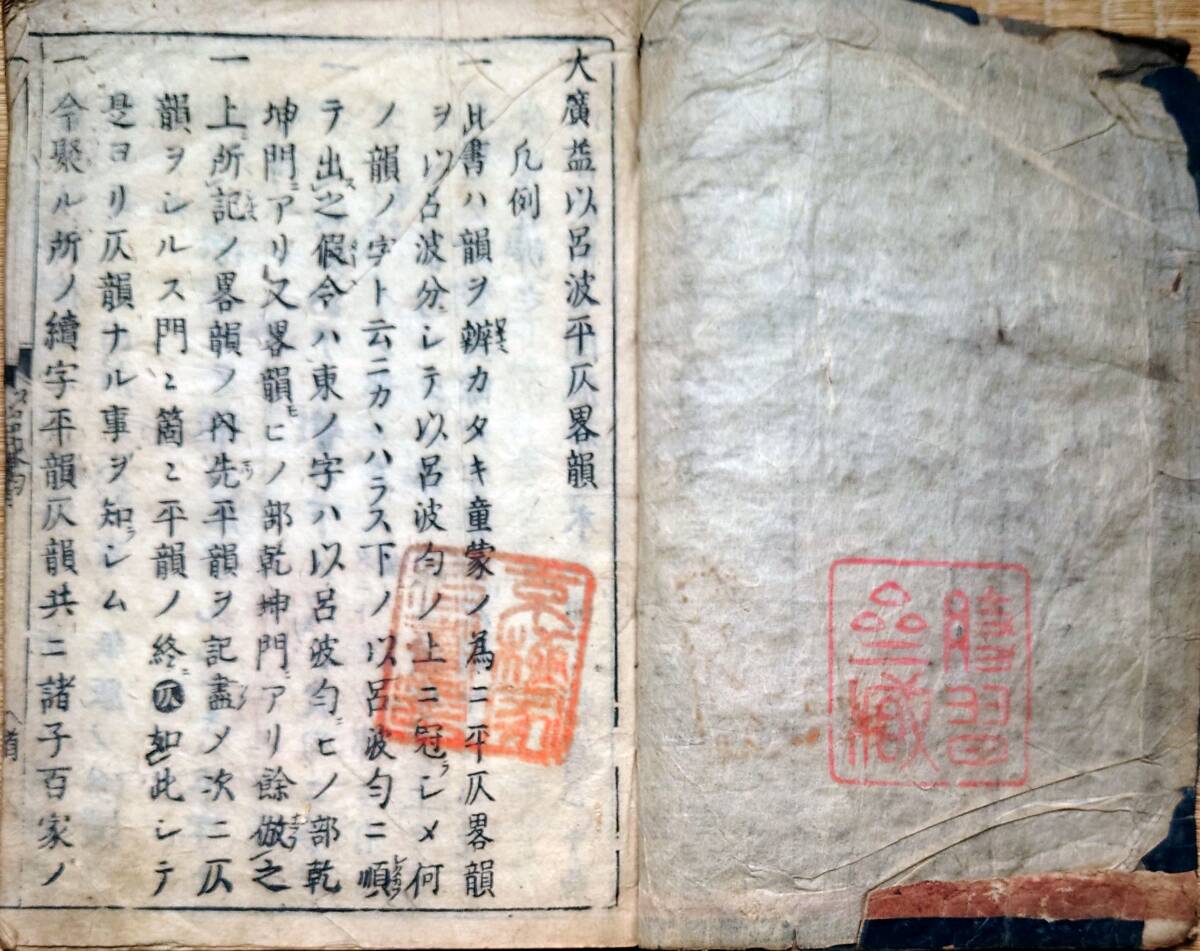 大廣益以呂波平仄畧韻
凡例
一此書ハ韻ヲ辨カタキ童蒙ノ為ニ平仄畧韻
ヲ以呂波分シテ以呂波勻ノ上ニ冠シメ何
ノ韻ノ字ト云ニカヽハラス下ノ以呂波勻ニ順
テ出之假令ハ東ノ字ハ以呂波勻ヒノ部乾
坤門アリ又畧韻ヒノ部乾坤門アリ餘倣之
一上所記ノ畧韻ノ內先平韻ヲ記盡メ次ニ仄
韻ヲシルス門〻箇〻平韻ノ終仄如此シテ
是ヨリ仄韻ナル事ヲ知シム
一今聚ル所ノ續字平韻仄韻共ニ諸子百家ノ